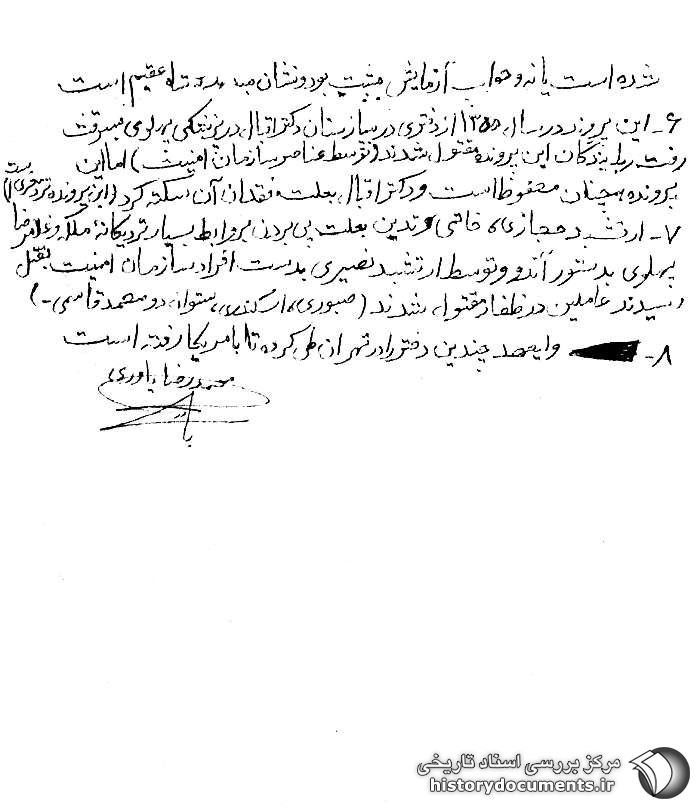 شده است یا نه و جواب آزمایش مثبت بود و نشان میدهد شاه عقیم است
۶- این پرونده در سال ۱۳۵۵ از دفتری در بیمارستان دکتر اقبال در پزشکی پهلوی بسرقت
رفت ربایندگان این پرونده مقتول شدند (توسط عناصر سازمان امنیت) اما این
پرونده همچنان محفوظ است و دکتر اقبال بعلت فقدان آن سکته کرد (این پرونده نزد است)
۷- ارتشبد حجازی، خاتمی بعلت پی بردن بروابط بسیار نزدیکانه ملکه و غلامرضا
پهلوی بدستور آندو و توسط ارتشبد نصیری بدست افراد سازمان امنیت بقتل
رسیدند عاملین در ظفار مقتول شدند (صبوری، ستواندو محمد قاسمی -)
۸- ولیعهد چندین دختر را در تهران کرده تا بامریکا رفته است
محمدرضا یاوری
مرکز بررسی اسناد تاریخی
historydocuments.ir